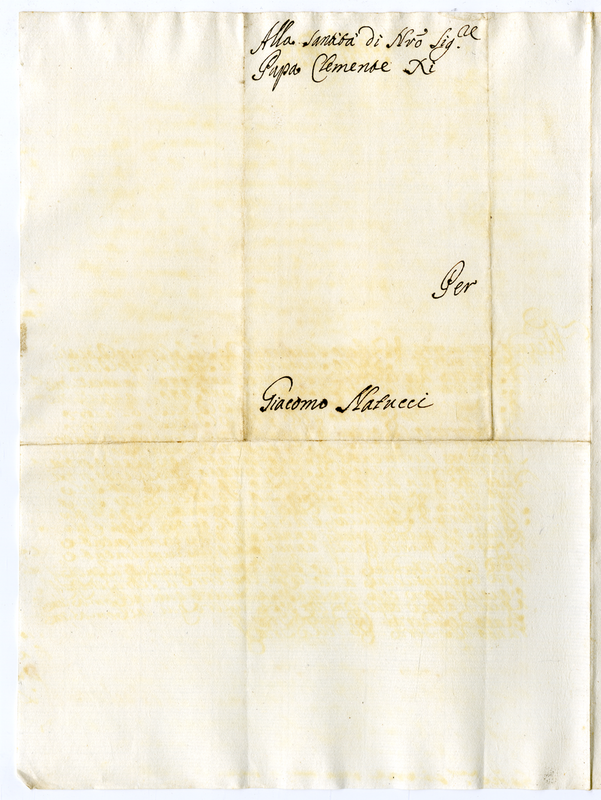 Alla Santità di Nrõ Sig.re
Papa Clemente Xi
Per
Giacomo Natucci